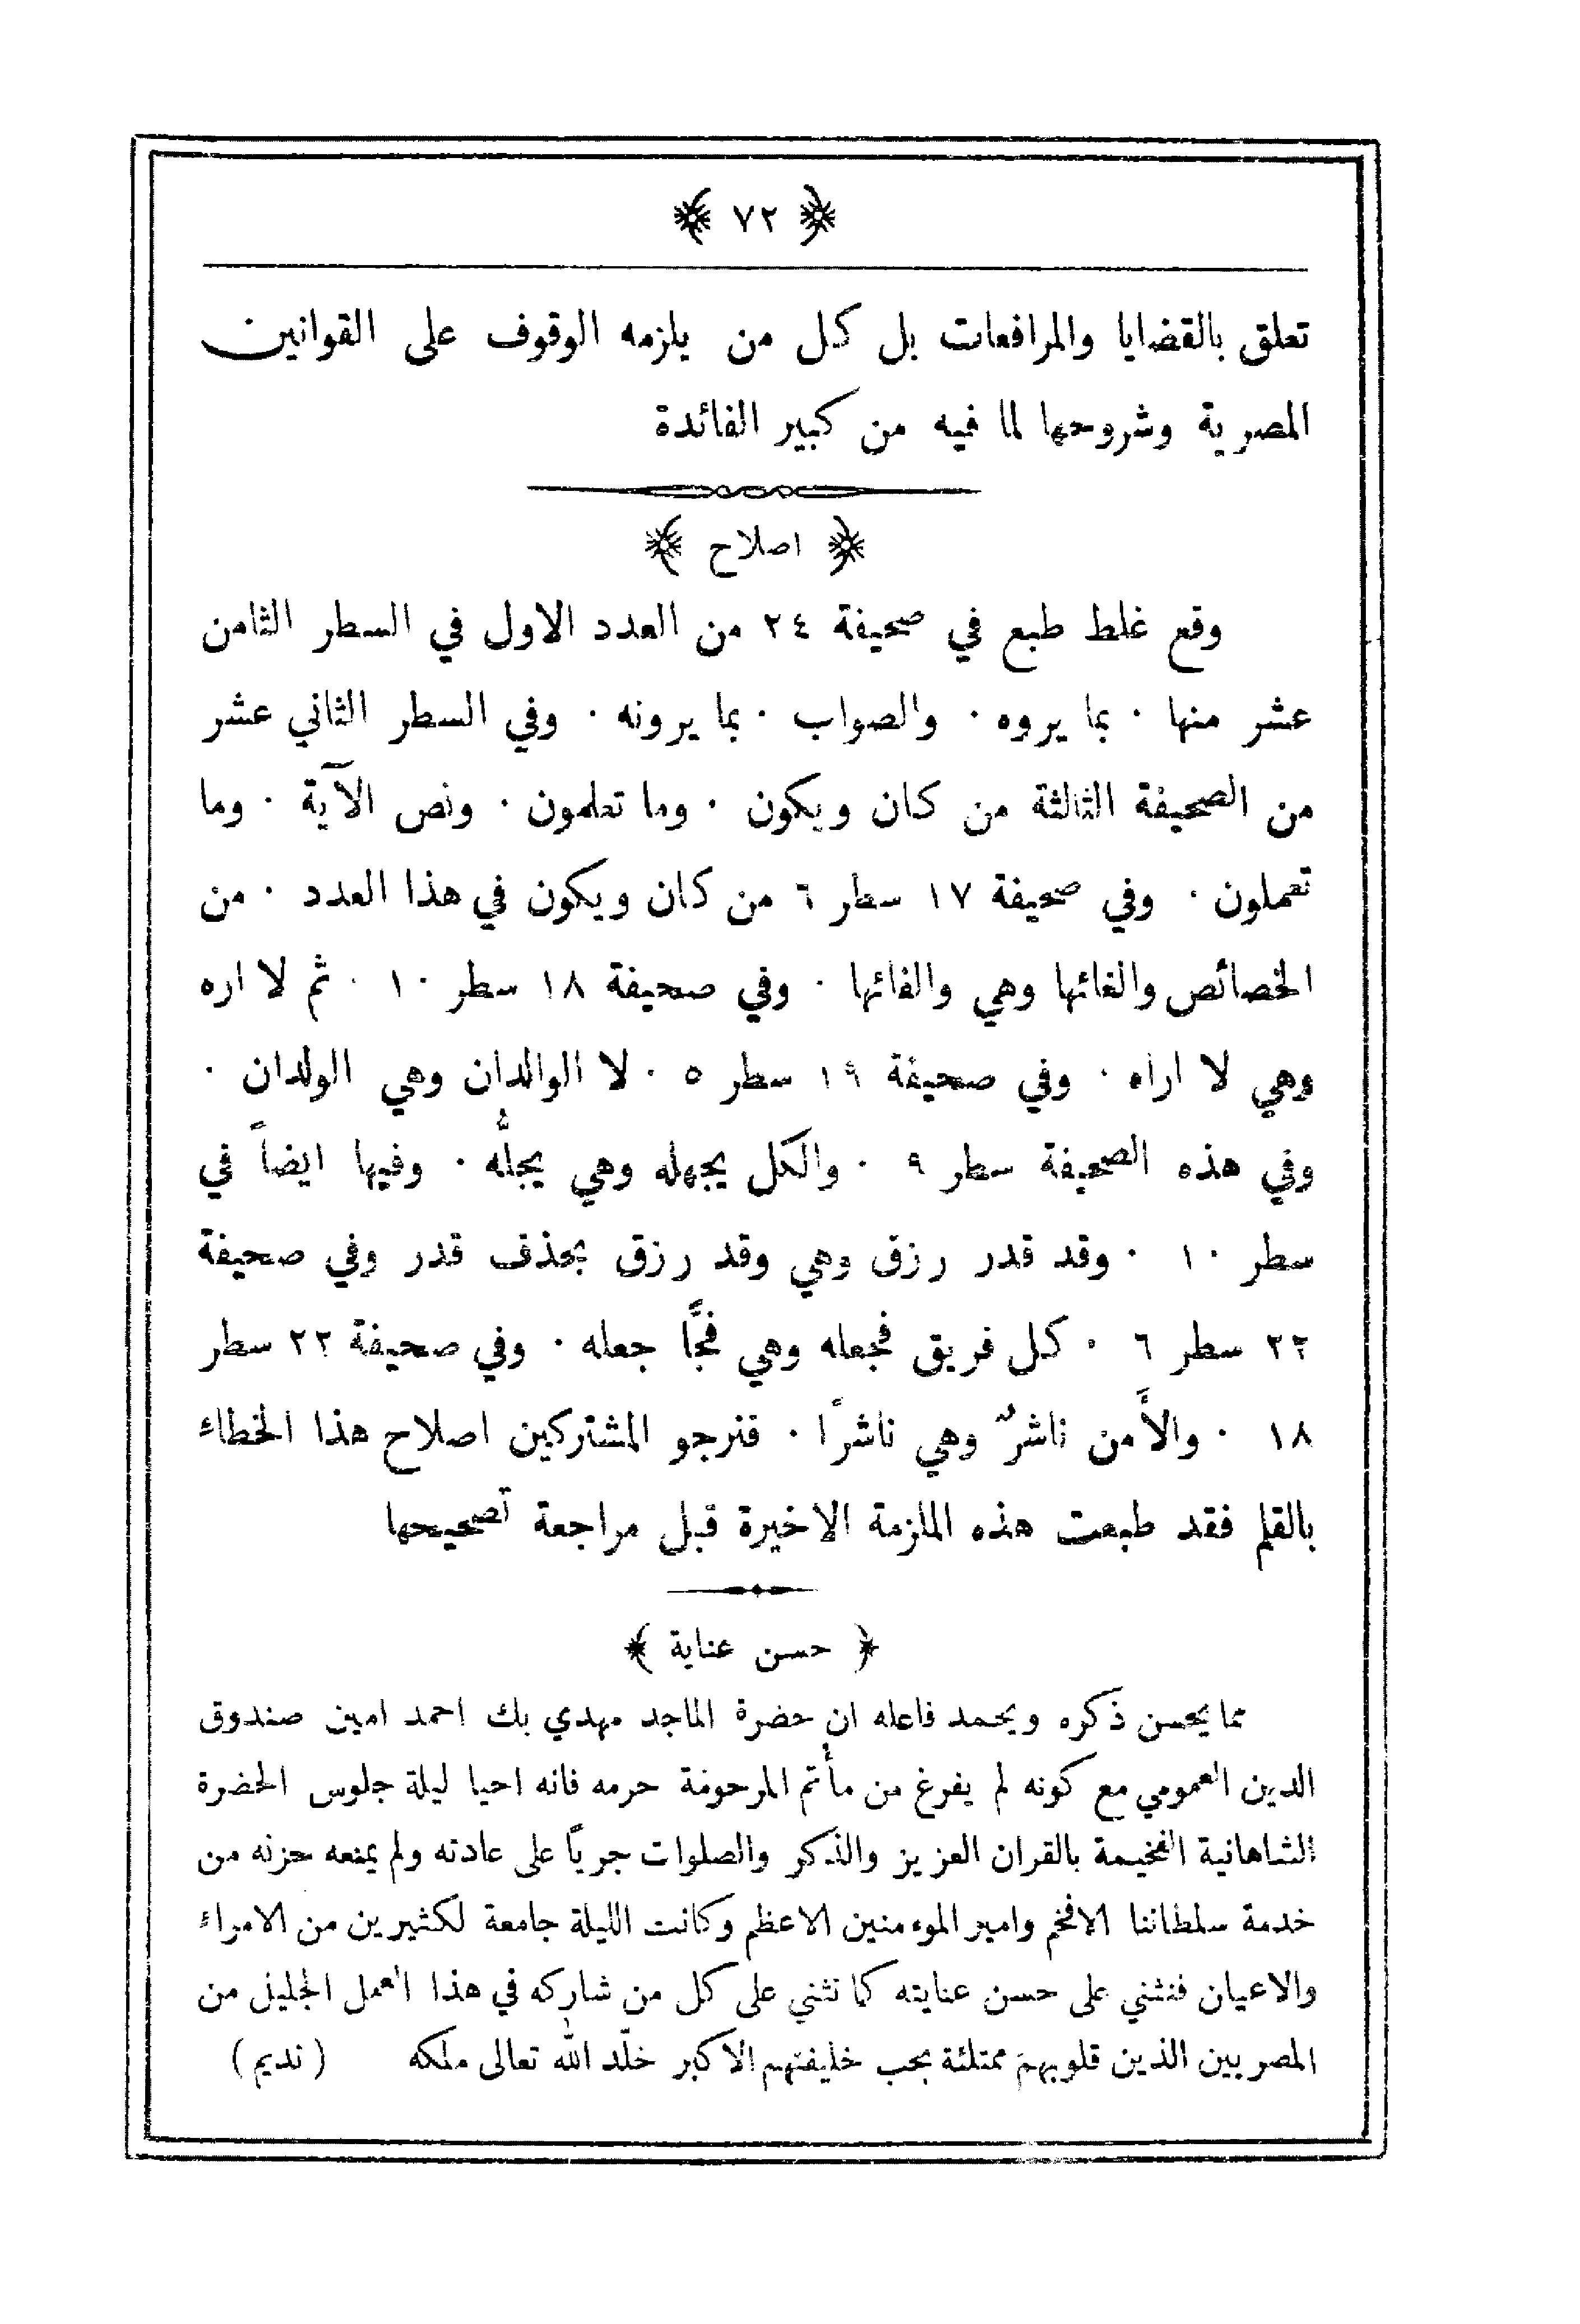 ﴿ ٧٢ ﴾
تعلق بالقضايا والمرافعات بل كل من يلزمه الوقوف على القوانين
المصرية وشروحها لما فيه من كبير الفائدة
﴿ اصلاح ﴾
وقع غلط طبع في صحيفة ٢٤ من العدد الاول في السطر الثامن
عشر منها ٠ بما يروه ٠ والصواب ٠ بما يرونه ٠ وفي السطر الثاني عشر
من الصحيفة الثالثة من كان ويكون ٠ وما تعلمون ٠ ونص الآية ٠ وما
تعملون ٠ وفي صحيفة ١٧ سطر ٦ من كان ويكون في هذا العدد ٠ من
الخصائص والغائها وهي والفائها ٠ وفي صحيفة ١٨ سطر ١٠ ٠ ثم لا اره
وهي لا اراه ٠ وفي صحيفة ١٩ سطر ٥ ٠ لا الوالدان وهي الولدان ٠
وفي هذه الصحيفة سطر ٩ ٠ والكل يجهله وهي يجلُّه ٠ وفيها ايضاً في
سطر ١٠ ٠ وقد قدر رزق وهي وقد رزق بحذف قدر وفي صحيفة
٢٢ سطر ٦ ٠ كل فريق فجعله وهي فجًّا جعله ٠ وفي صحيفة ٢٢ سطر
١٨ ٠ والأَمن ناشرٌ وهي ناشرًا ٠ فنرجو المشتركين اصلاح هذا الخطاء
بالقلم فقد طبعت هذه الملزمة الاخيرة قبل مراجعة تصحيحها
﴿ حسن عناية ﴾
مما يحسن ذكره ويحمد فاعله ان حضرة الماجد مهدي بك احمد امين صندوق
الدين العمومي مع كونه لم يفرغ من مأتم المرحومة حرمه فانه احيا ليلة جلوس الحضرة
الشاهانية الفخيمة بالقران العزيز والذكر والصلوات جرياً على عادته ولم يمنعه حزنه من
خدمة سلطاننا الافخم وامير الموءمنين الاعظم وكانت الليلة جامعة لكثيرين من الامراء
والاعيان فنثني على حسن عنايته كما نثني على كل من شاركه في هذا العمل الجليل من
المصريين الذين قلوبهم ممتلئة بحب خليفتهم الاكبر خلّد الله تعالى ملكه (نديم)